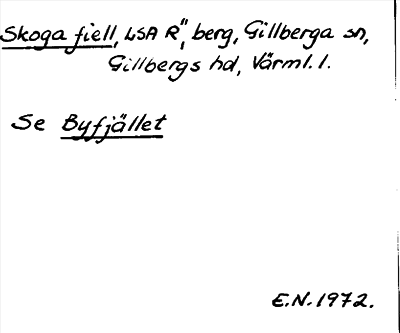 Skoga fiell, LSA R", berg, Gillberga sn,
Gillbergs hd, Värml. l.
Se Byfjället
E.N. 1972.